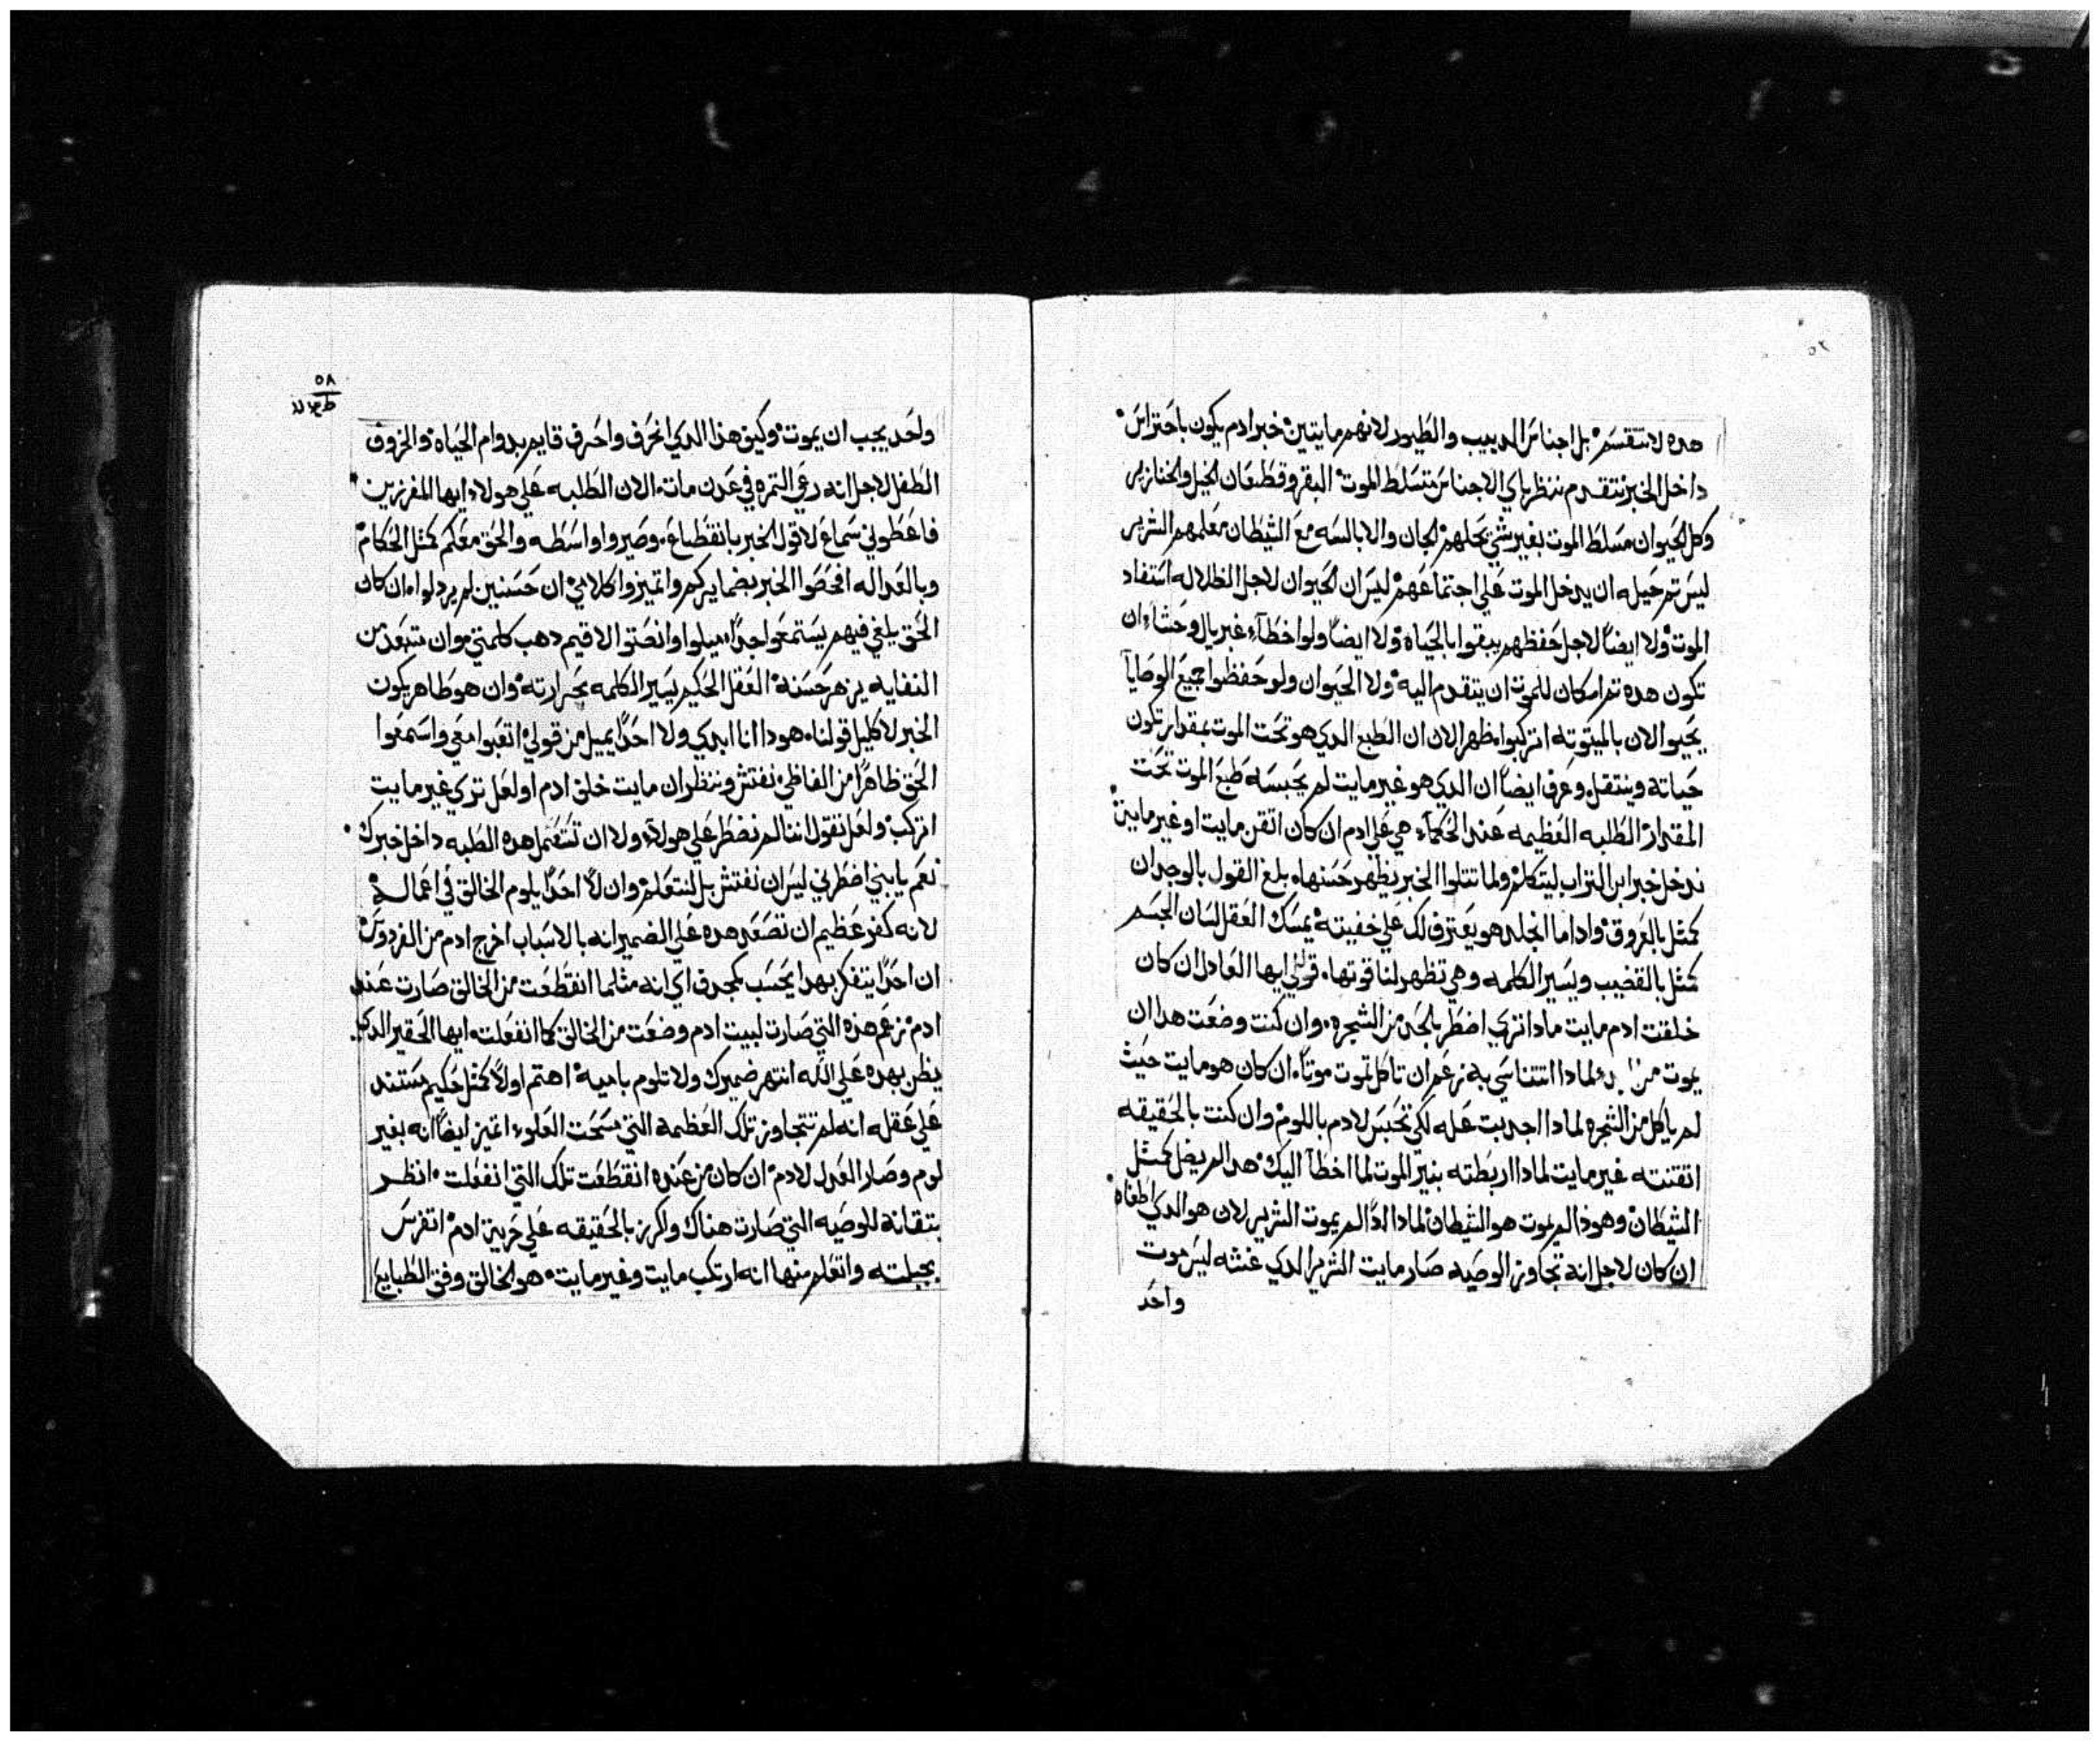 هده لا تنقسم بل اجناس الدبيب والطيور لانهم مايتين خبر ادم يكون باحتراس
داخل الخبر نتقدم ننظر باي الاجناس تتسلط الموت البقر وقطعان الخيل والخنازير
وكل الحيوان مسلط الموت بغير شي تجلهم الجان والابالسه مع الشيطان معلمهم الشرير
ليس تم حيله ان يدخل الموت علي اجتماعهم ليس ان الحيوان لاجل الظلاله استفاد
الموت ولا ايضاً لاجل حفظهم يبقوا بالحياه ولا ايضاً ولو اخطاء غير يال وحشاء ان
تكون هده تم امكان للموت ان يتقدم اليه ولا الحيوان ولو حفظوا جميع الوصايا
يحيوا لان بالميتوته اتركبوا ظهر الان ان الطبع الدي هو تحت الموت بمقدار تكون
حياته وينتقل وعرف ايضاً ان الدي هو غير مايت لم يحبسه طبع الموت تحت
المقدار الطلبه العظيمه عند الحكماء هي علي ادم ان كان اتقن مايت او غير مايت
ندخل خبر ابن التراب ليتكلم ولما تتلوا الخبر يظهر حسنها بلغ القول بالوجدان
كمثل بالعروق واداما انجلد هو يعترف لك علي خفيته يمسك العقل لسان الجسم
كمثل بالقضيب ويسير الكلمه وهي تظهر لنا قوتها قولي ايها العادل ان كان
خلقت ادم مايت مادا تري اضطر بالجد من الشجره وان كنت وضعت هدا ان
يموت من لمادا انتناسي به نزعم ان تاكل تموت موتاً ان كان هو مايت حيث
لم ياكل من الشجره لمادا اجدبت عله لكي تحبس لادم باللوم وان كنت بالحقيقه
اتقنته غير مايت لمادا اربطته بنير الموت لما اخطا اليك هدا المريض كمثل
الشيطان وهودا لم يموت هو الشيطان لمادا ادًا لم يموت الشرير لان هو الدي اطغاه
ان كان لاجل انه تجاوز الوصيه صار مايت الشرير الدي غشه ليس موت
واحد
٥٨
واحد يجب ان يموت وكيف هذا الدي انحرف واحرف قايم بدوام الحياه والخروف
الطفل لاجل انه رعي التمره في عدن مات الان الطلبه علي هولاء ايها المفرزين
فاعطوني سماع لاقول الخبر بانقطاع وصيروا واسطه والحق معكم كمثل الحكام
وبالعداله افحصوا الخبر بضمايركم واتميزوا كلامي ان حسنين لم يردلوا ان كان
الحق يلغي فيهم يستمعوا جداً ميلوا وانصتوا لا قيم دهب كلمتي وان تتبعد من
النفايه يزهر حسنة العقل الحكيم يسير الكلمه بحرارته وان هو طاهر يكون
الخبر لا كليل قولنا هودا انا ابدي ولا احداً يميل من قولي اتعبوا معي واسمعوا
الحق ظاهراً من الفاظي نفتش وننظر ان مايت خلق ادم او لعل تري غير مايت
اتركب ولعل نقول اننا لم نضطر علي هولاء ولا ان تستعمل هده الطلبه داخل خبرك
نعم يا بني اضطرني ليس ان نفتش بل لنتعلم وان لا احداً يلوم الخالق في اعماله
لانه كفر عظيم ان تصعد هده علي الضمير انه بالاسباب اخرج ادم من الفردوس
ان احداً يتفكر بهدا يحسب كمجدف اي انه مثلما انقطعت من الخالق صارت عند
ادم نزعم هذه التي صارت لبيت ادم وضعت من الخالق كما انفعلت ايها الحقير الدي
يظن بهده علي الله انتهر ضميرك ولا تلوم باميه اهتم اولاً كمثل حكيم مستند
علي عقله انه لم تتجاوز تلك العظمة التي مسحت العلوء اتميز ايضاً انه بغير
لوم وصار العدل لادم ان كان من عنده انقطعت تلك التي انفعلت انظر
بتقانة للوصيه التي صارت هناك واكرز بالحقيقه علي حرية ادم اتفرس
بجبلته واتعلم منها انه ارتكب مايت وغير مايت هو الخالق وفق الطبايع